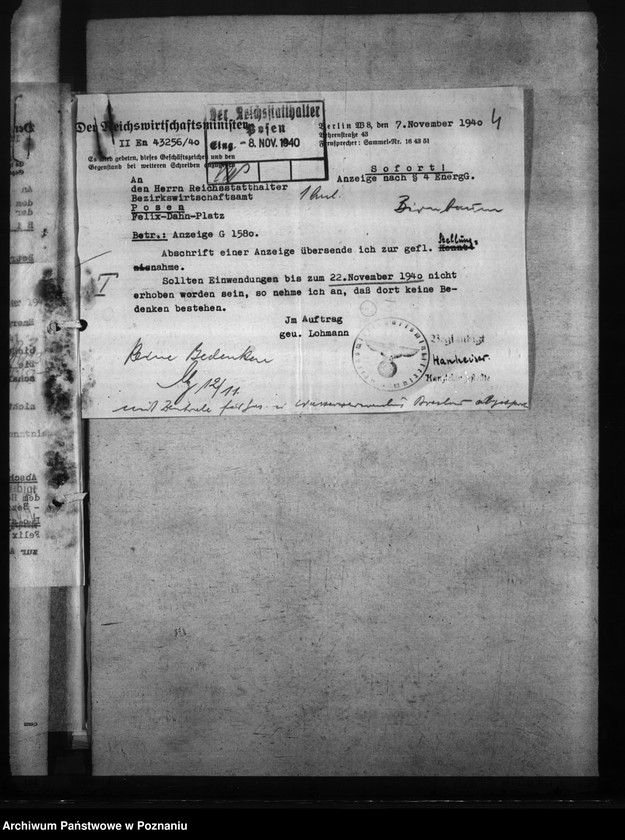 Der Reichswirtschaftsminister
II En 43256/40
Es wird gebeten, dieses Geschäftszeichen und den
Gegenstand bei weiteren Schreiben anzugeben.
Der Reichsstatthalter
Posen
Eing. - 8. NOV. 1940
Berlin W 8, den 7. November 1940
4
Behrenstraße 43
Fernsprecher: Sammel-Nr. 16 43 51
Sofort!
Anzeige nach § 4 EnergG.
An
den Herrn Reichsstatthalter
Bezirkswirtschaftsamt
Posen
Felix-Dahn-Platz
1 Anl.
Birnbaum
Betr.: Anzeige G 1580.
Abschrift einer Anzeige übersende ich zur gefl. Stellung-
nahme.
Sollten Einwendungen bis zum 22.November 1940 nicht
erhoben worden sein, so nehme ich an, daß dort keine Be-
denken bestehen.
Jm Auftrag
gez. Lohmann
Beglaubigt
Keine Bedenken
12/11
mit Zentrale für Gas- u Wasserverwendung Breslau
Archiwum Państwowe w Poznaniu